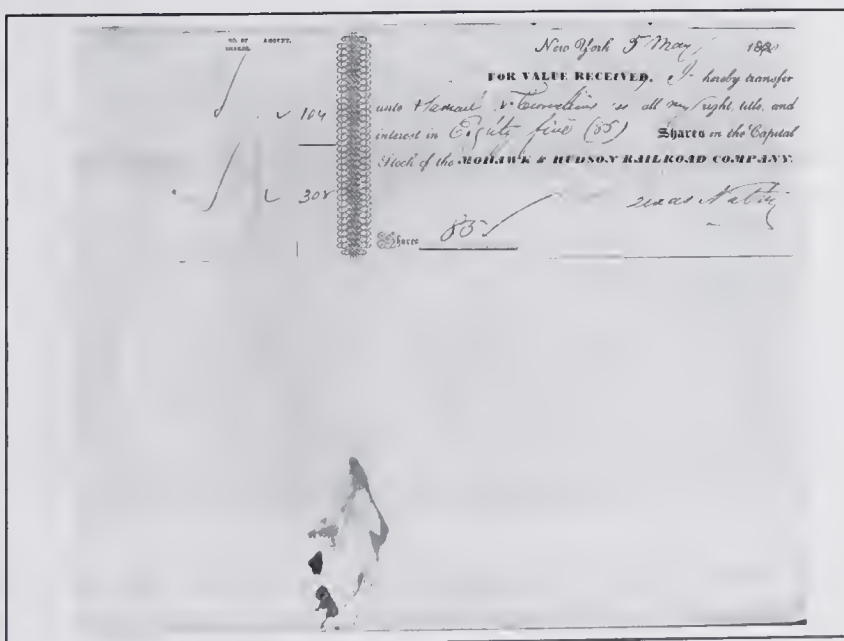 NO. OF SHARES. AMOUNT.
New York 5 May 18
FOR VALUE RECEIVED, I hereby transfer
104 unto & all my right, title, and
interest in Eighty five (85) Shares in the Capital
Stock of the MOHAWK & HUDSON RAILROAD COMPANY.
308
Shares 85